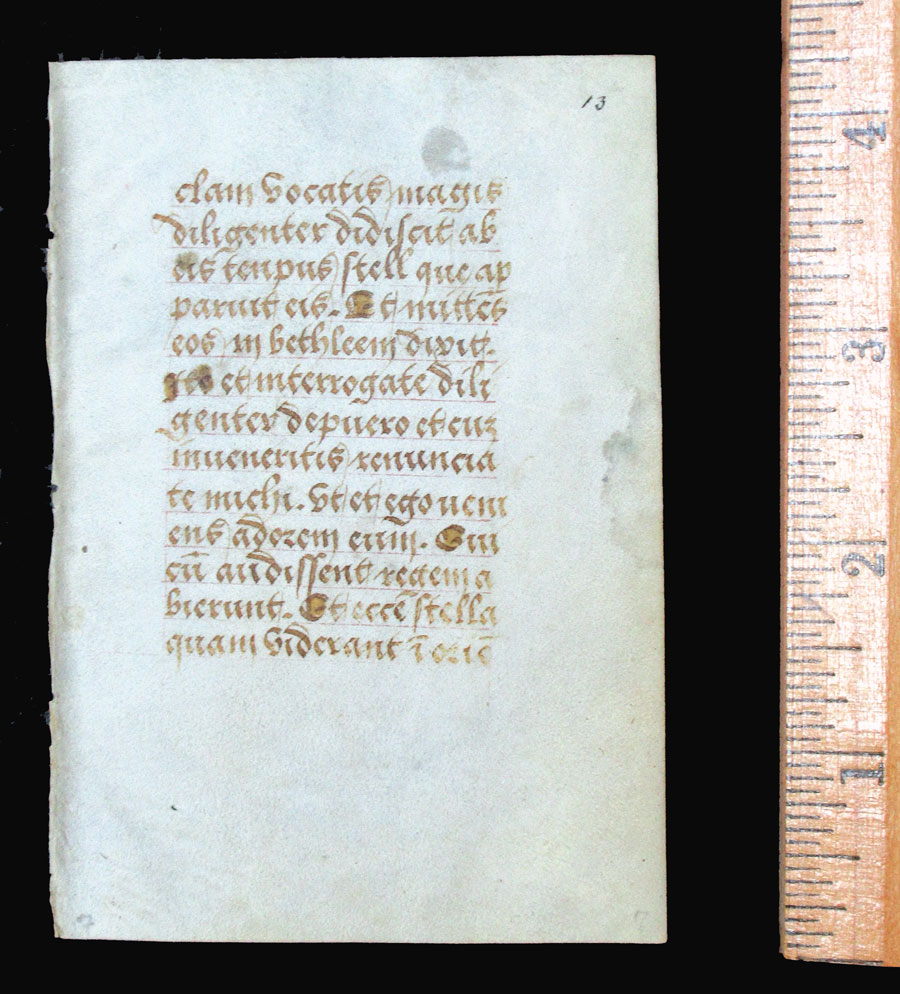 13
clam vocatis magis
diligenter didiscit ab
eis tenpus stell que ap
paruit eis. Et mittēs
eos in bethleem dixit.
Ite et interrogate dili
genter de puero et cuz
inueneritis renuncia
te michi. Vt et ego ueni
ens adorem eum. Qui
cū audissent regem a
bierunt. Et ecce stella
quam viderant ī oriē
4
3
2
1